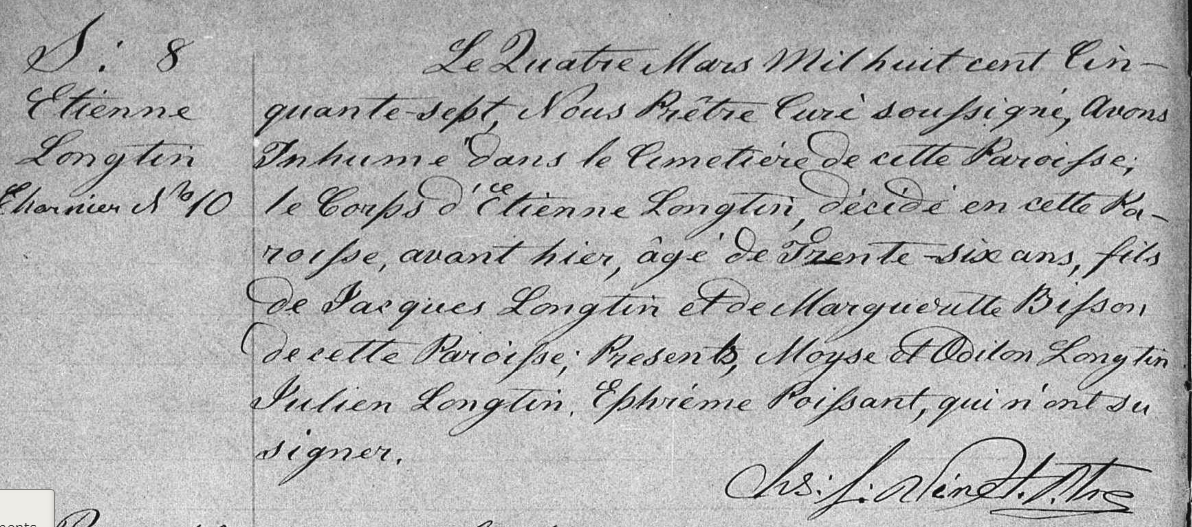 S: 8
Etienne
Longtin
Charnier No 10
Le Quatre Mars Mil huit cent Cin-
quante-sept, Nous Prêtre Curé soussigné, Avons
Inhumé dans le Cimetière de cette Paroisse;
le Corps d'Etienne Longtin, décidé en cette Pa-
roisse, avant hier, âgé de Trente-six ans, fils
de Jacques Longtin et de Marguerite Bisson
de cette Paroisse; Presents, Moyse et Odilon Longtin
Julien Longtin. Ephrème Poissant, qui n'ont su
signer.